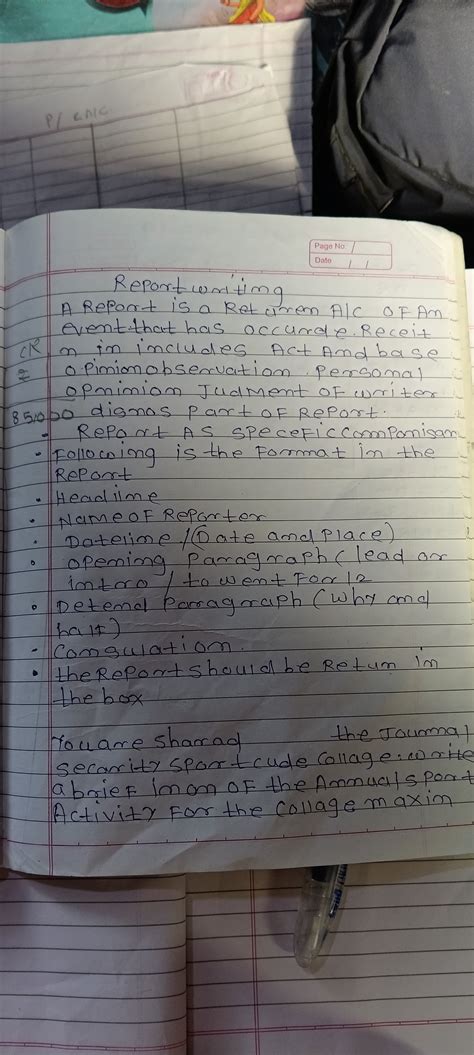 P/ GNC
Page No.
Date
Report writing
A Report is a Returen A/c OF An
event that has occurde. Receit
n in includes Act And base
opimion obseruation. Personal
opnimion Judment of writer
85000 dignos part of Report.
Report As speceficcomponisam
Following is the Format in the
Report
Headlime
Name of Reporter
Datelime / (Date and place)
opening Paragraph (lead or
intro / to went For 12
Detend Parragraph (why cmd
half)
Comgulation.
the Report should be Return in
the box
You are Sharad the Journal
secarity sport cude collage. write
a brief imon of the Ammual sport
Activity For the Collage maxim